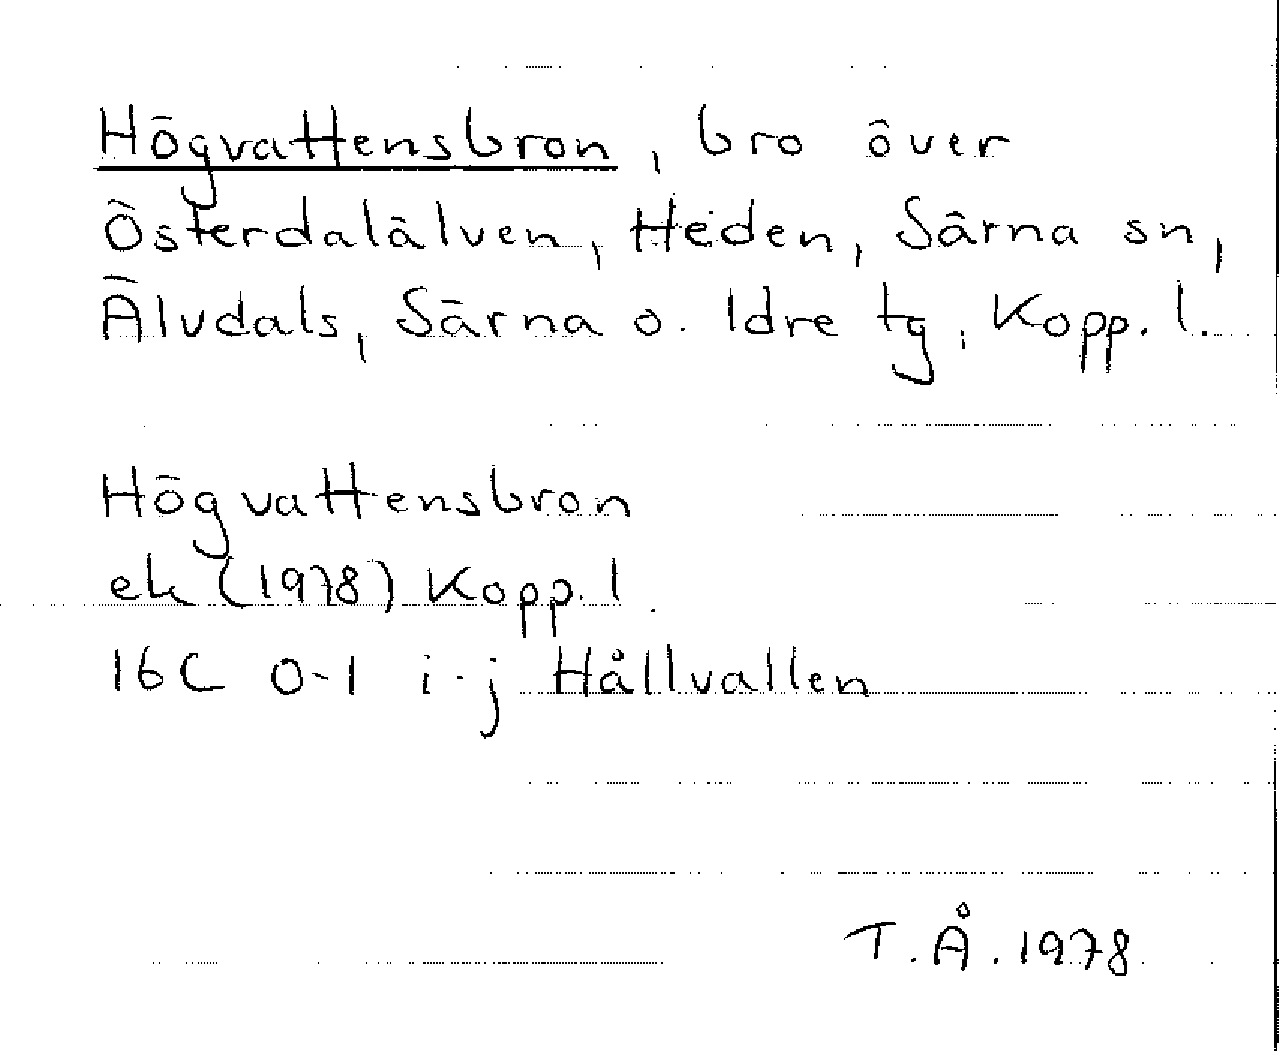 Högvattensbron, bro över
Österdalälven, Heden, Särna sn,
Älvdals, Särna o. Idre tg, Kopp. l.
Högvattensbron
ek (1978) Kopp. l.
16C 0-1 i-j Hållvallen
T.Å. 1978